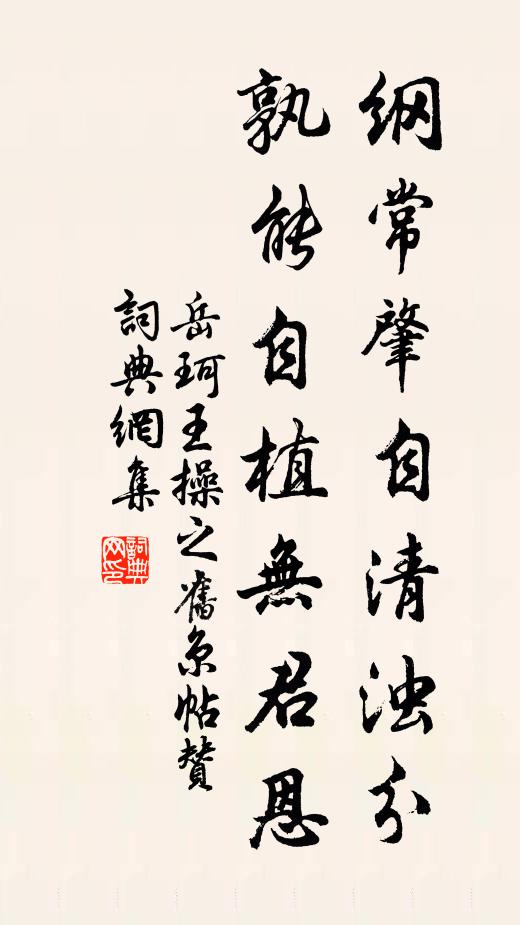 纲常肇自清浊分
孰能自植無君恩
岳珂王操之舊京帖贊
詞典網集
詞典网印